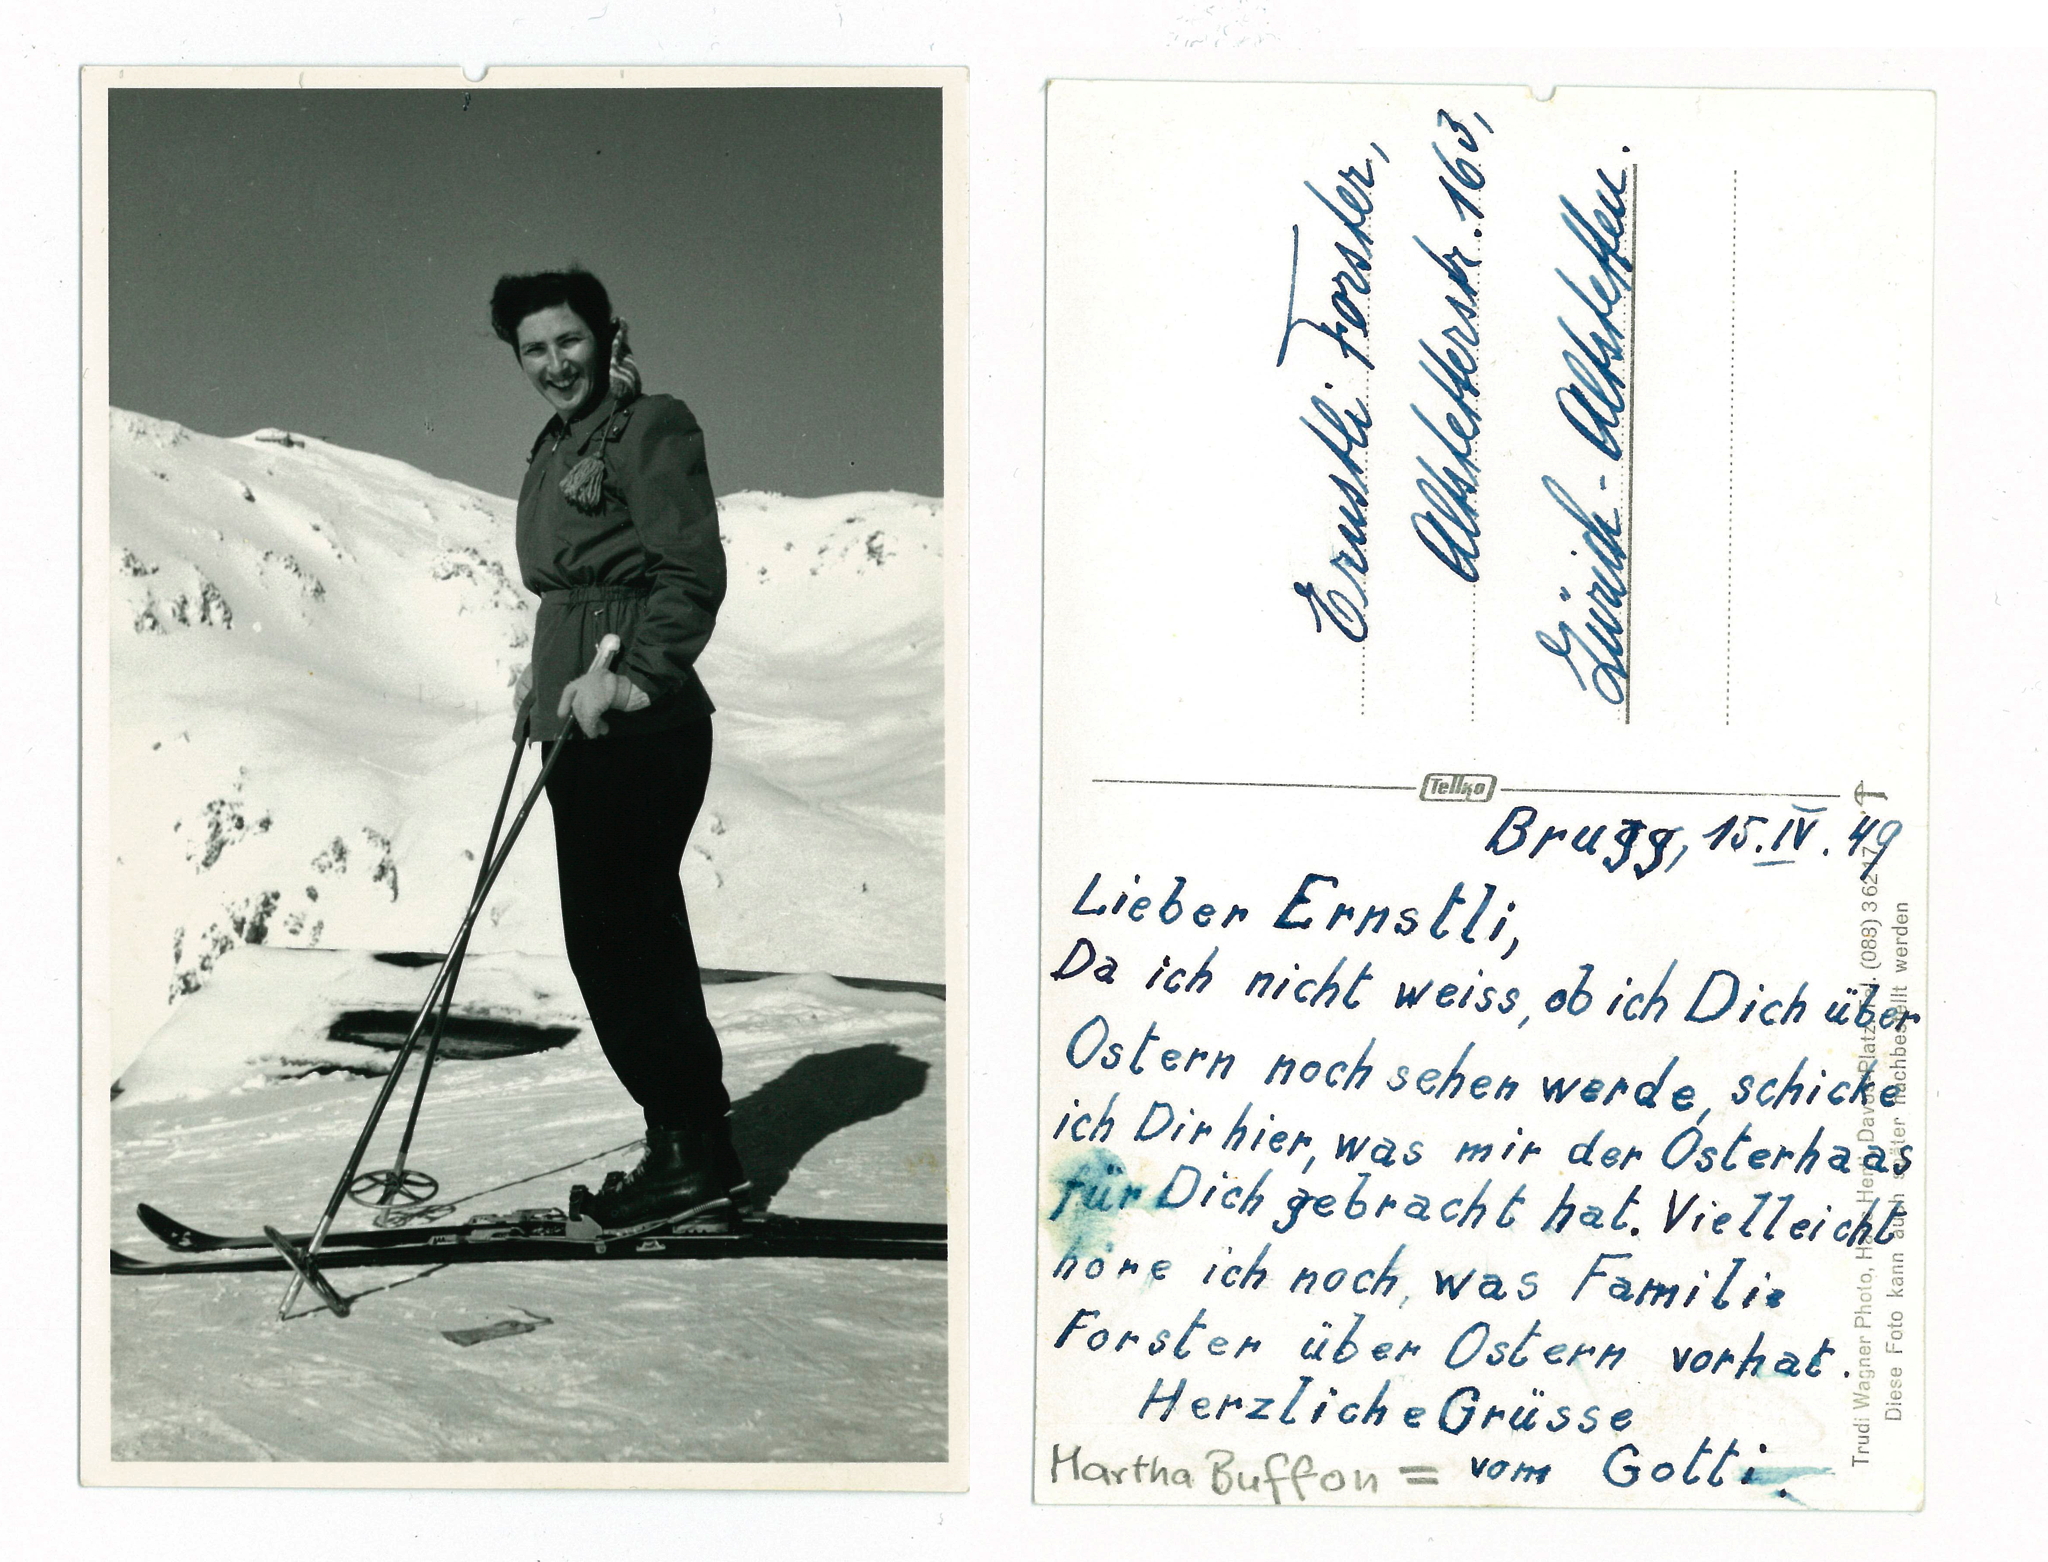 Ernstli Forster,
Altstetterstr. 163,
Zürich-Altstetten.
Tellko
Brugg, 15. IV. 49
Lieber Ernstli,
Da ich nicht weiss, ob ich Dich über
Ostern noch sehen werde, schicke
ich Dir hier, was mir der Osterhaas
für Dich gebracht hat. Vielleicht
höre ich noch, was Familie
Forster über Ostern vorhat.
Herzliche Grüsse
Martha Buffon = vom Gotti.
Trudi Wagner Photo, Haus Herti, Davos-Platz, Tel. (083) 3 62 17
Diese Foto kann auch später nachbestellt werden